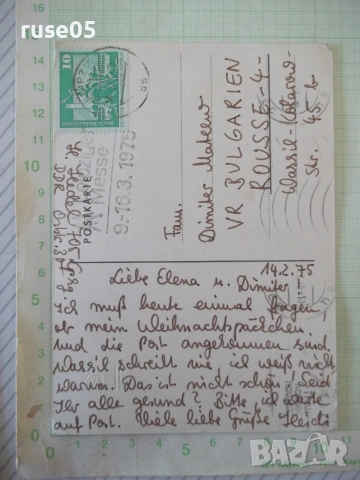 ruse05
10
Leipziger
Messe
9-16.3.1975
POSTKARTE
Fam.
Dimiter Mateew
VR BULGARIEN
ROUSSE -4-
Wassil-Kolarow-
Str. 45 b
14.2.75
Liebe Elena u. Dimiter
Ich muß heute einmal fragen
ob mein Weihnachtspäckchen
und die Post angekommen sind.
Wassil schreibt nie, ich weiß nicht
warum. Das ist nicht schön! Seid
Ihr alle gesund? Bitte, ich warte
auf Post. Viele liebe Grüße Heidi
BAZAR